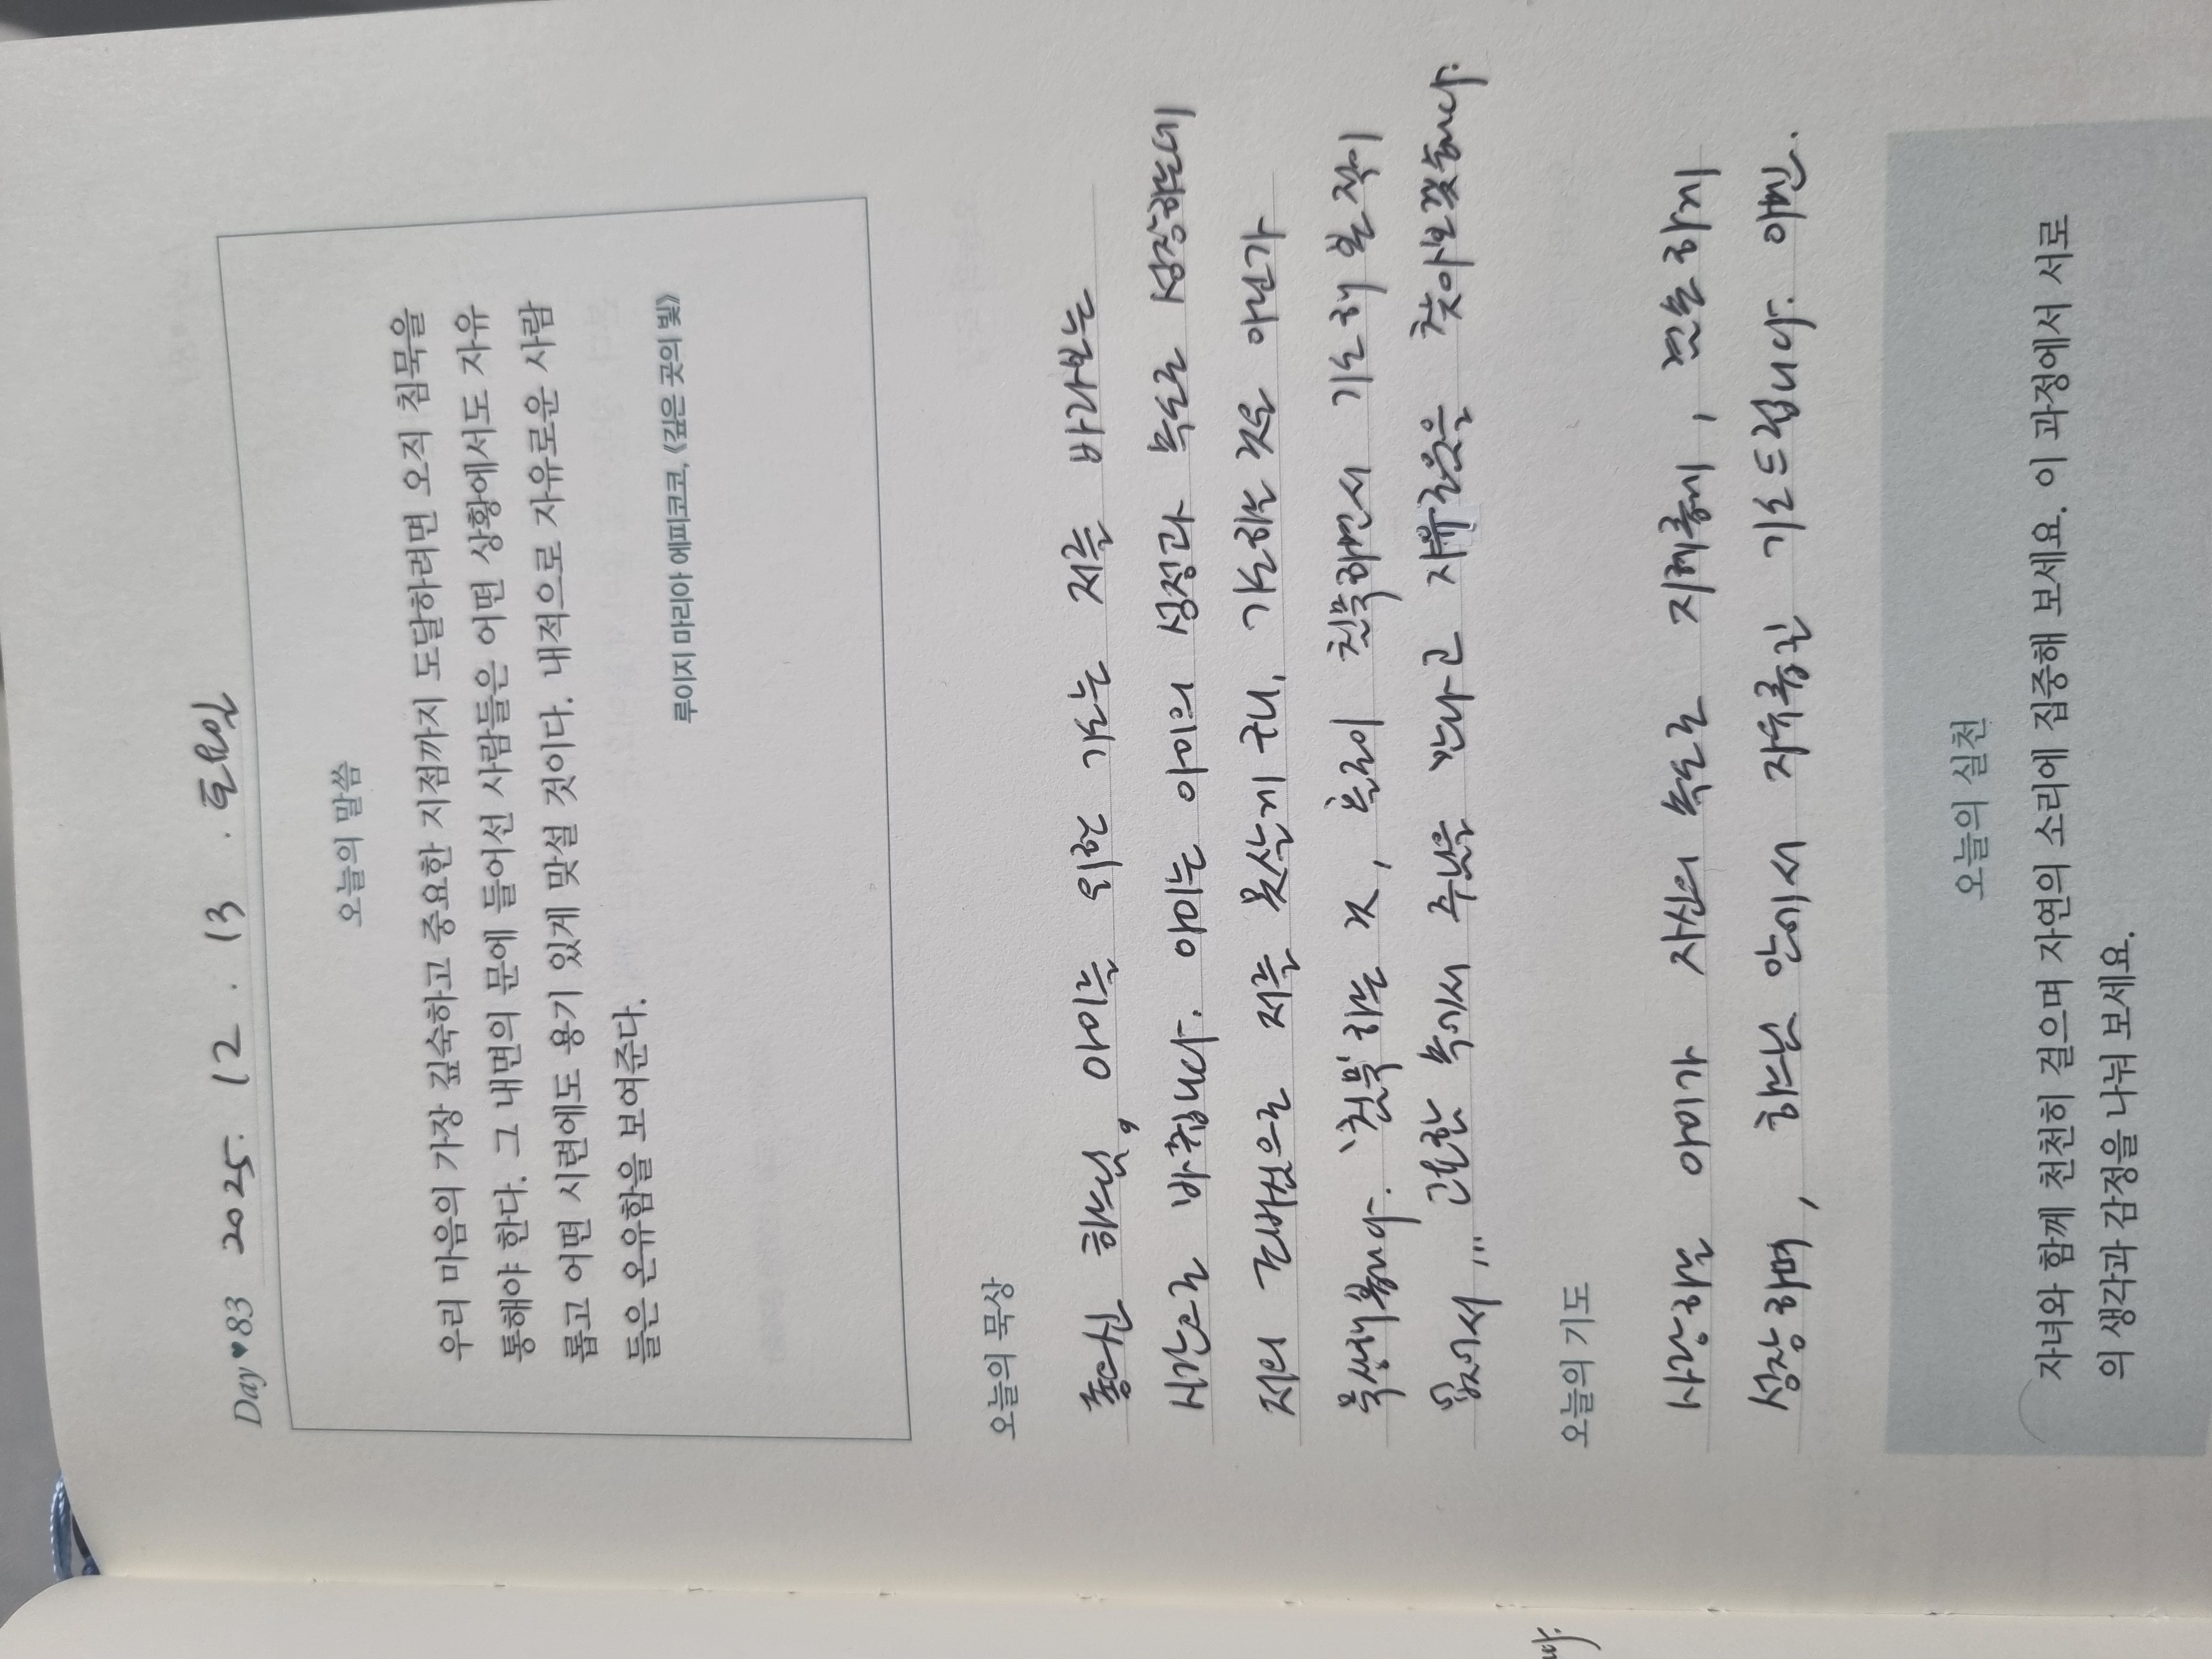 Day♥83 2025. 12. 13. 토요일
오늘의 말씀
우리 마음의 가장 깊숙하고 중요한 지점까지 도달하려면 오직 침묵을
통해야 한다. 그 내면의 문에 들어선 사람들은 어떤 상황에서도 자유
롭고 어떤 시련에도 용기 있게 맞설 것이다. 내적으로 자유로운 사람
들은 온유함을 보여준다.
루이지 마리아 에피코코, 《깊은 곳의 빛》
오늘의 묵상
좋으신 하느님, 아이를 위한 기도는 저를 바라보는
시간으로 바뀝니다. 아이는 아이의 성정과 속도로 성장하는데
저의 조바심으로 저를 못살게 구니, 기도하는 것은 아닌가
묵상해봅니다. '침묵'하는 것, 온전히 침묵하면서 기도해 본 적이
있어서,... 고요함 속에서 주님을 만나고 자유로움을 찾아보겠습니다.
오늘의 기도
사랑하는 아이가 자신의 속도로 지혜롭게, 온유하게
성장하며, 하느님 안에서 자유롭길 기도드립니다. 아멘.
오늘의 실천
자녀와 함께 천천히 걸으며 자연의 소리에 집중해 보세요. 이 과정에서 서로
의 생각과 감정을 나눠 보세요.